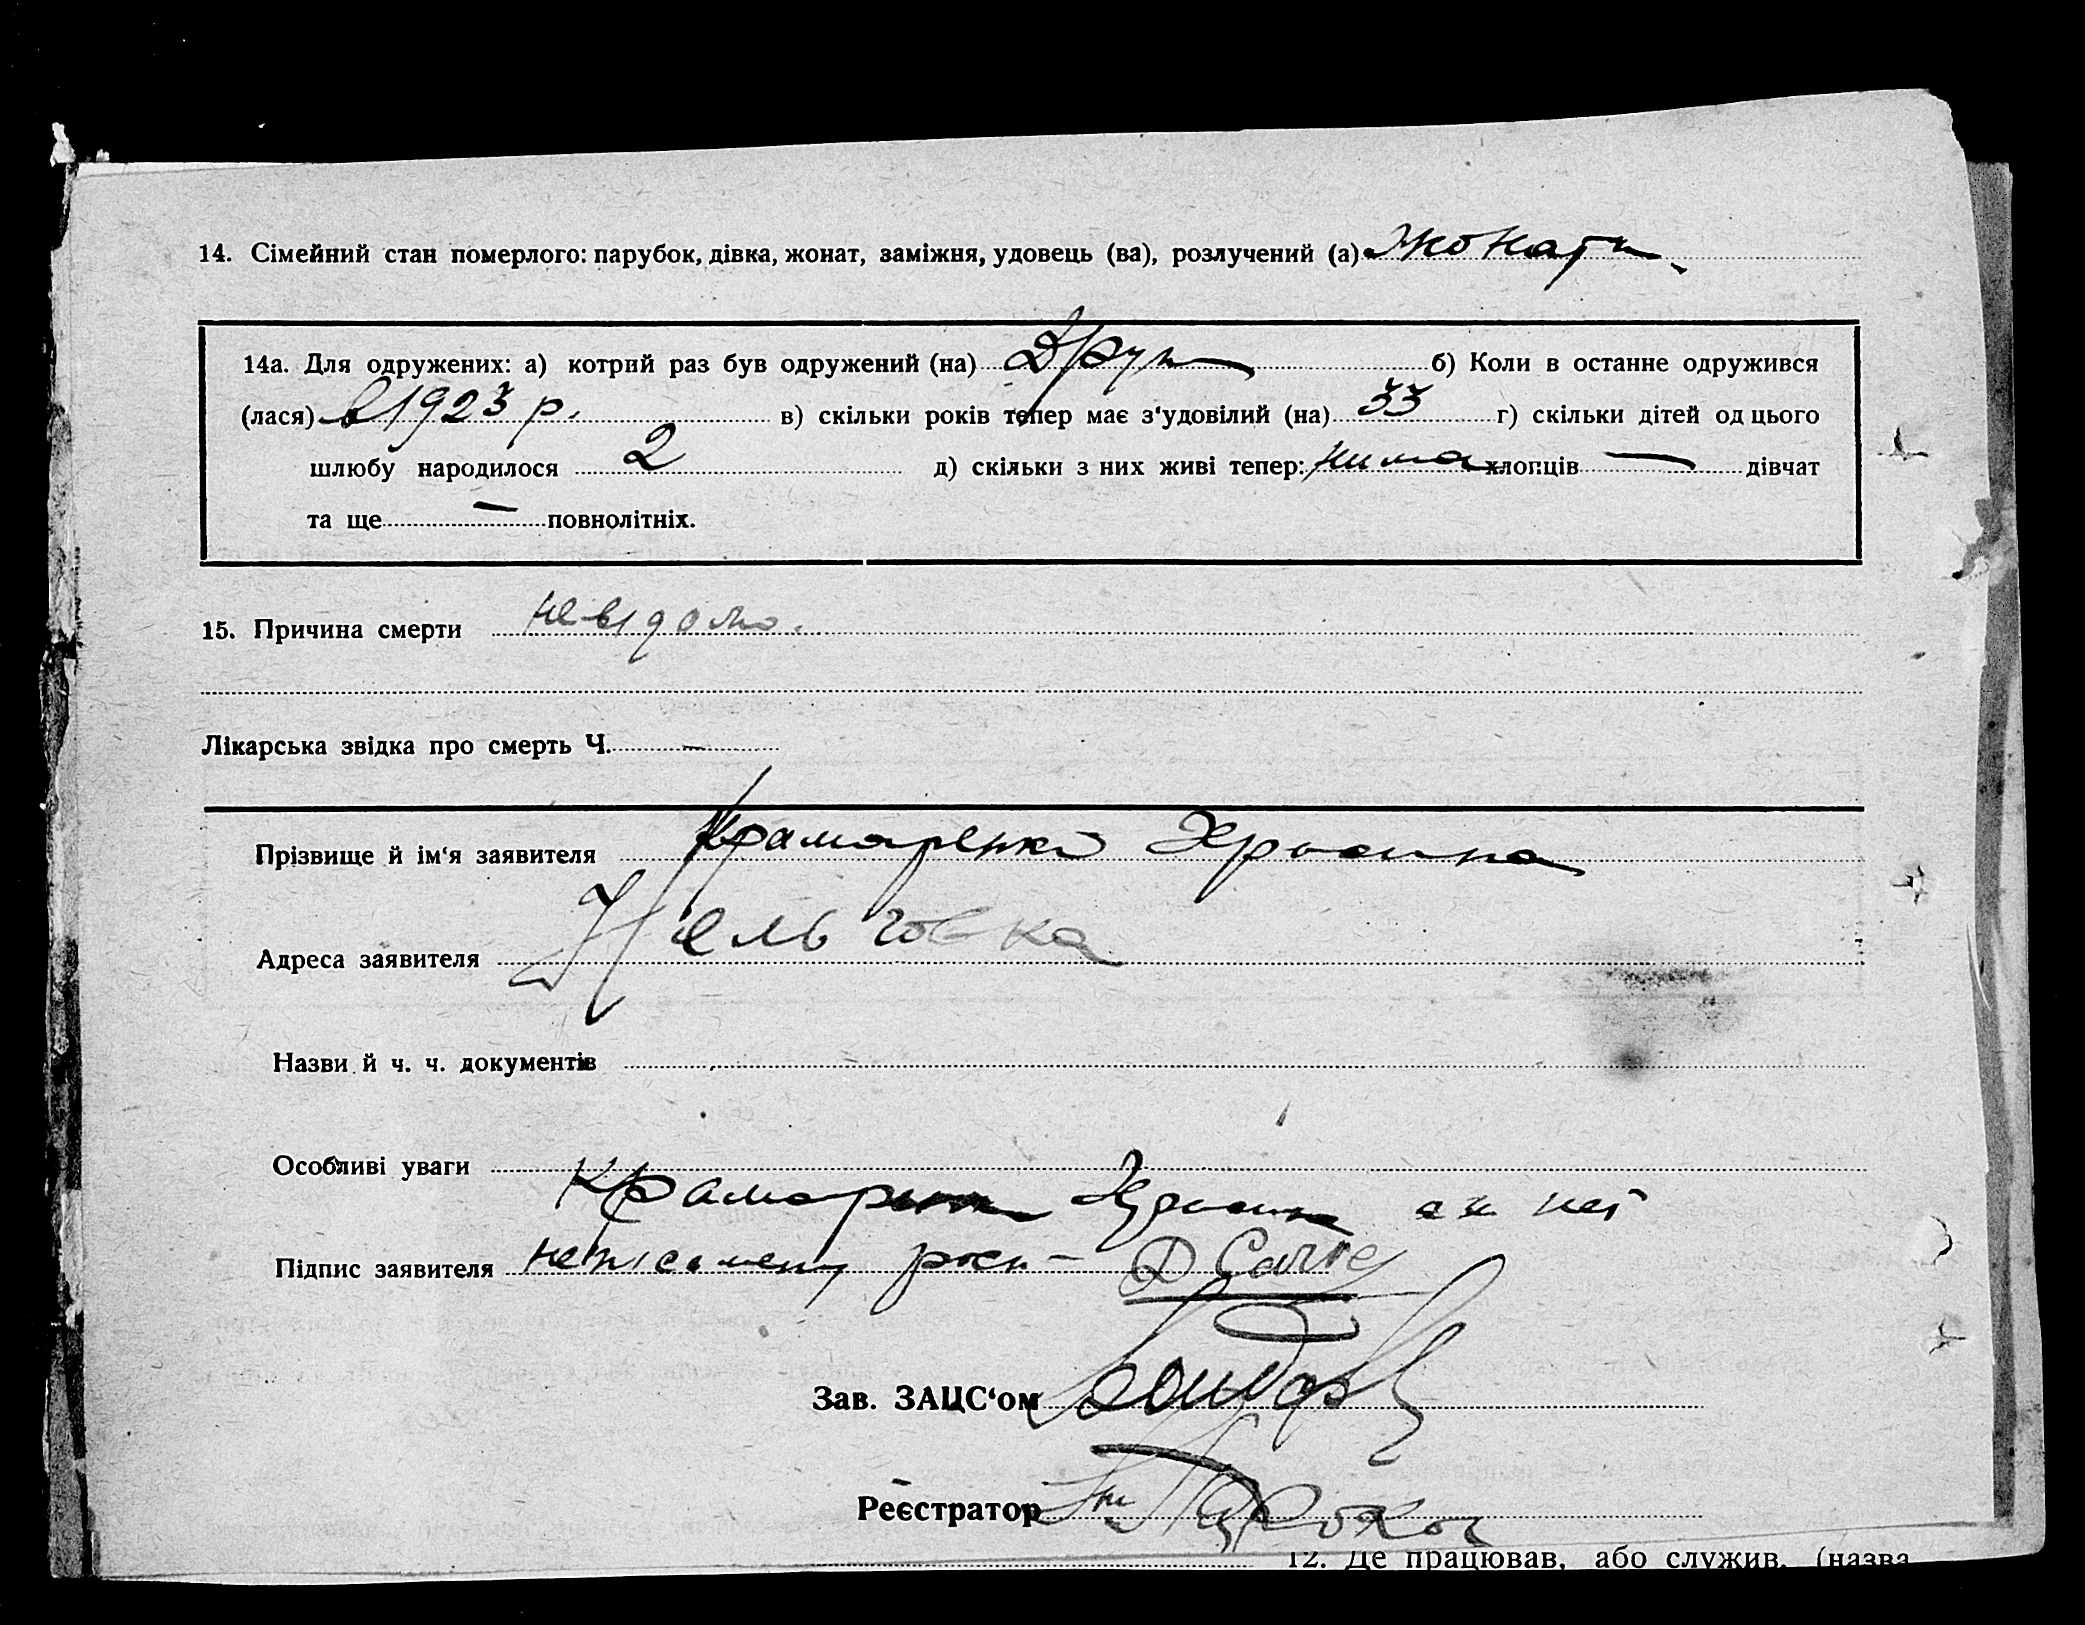 14. Сімейний стан померлого: парубок, дівка, жонат, заміжня, удовець (ва), розлучений (а) жонати
14а. Для одружених: а) котрий раз був одружений (на) Други б) Коли в останне одружився
(лася) в 1923 р. в) скільки років тепер має з‘удовілий (на) 33 г) скільки дітей од цього
шлюбу народилося 2 д) скільки з них живі тепер: нима хлопців — дівчат
та ще — повнолітніх.
15. Причина смерти невідомо.
Лікарська звідка про смерть Ч. —
Прізвище й ім‘я заявителя Крамаренко
Адреса заявителя
Назви й ч. ч. документів
Особливі уваги
Крамаренко
Підпис заявителя
Зав. ЗАЦС‘ом
Реєстратор
12. Де працював, або служив, (назва